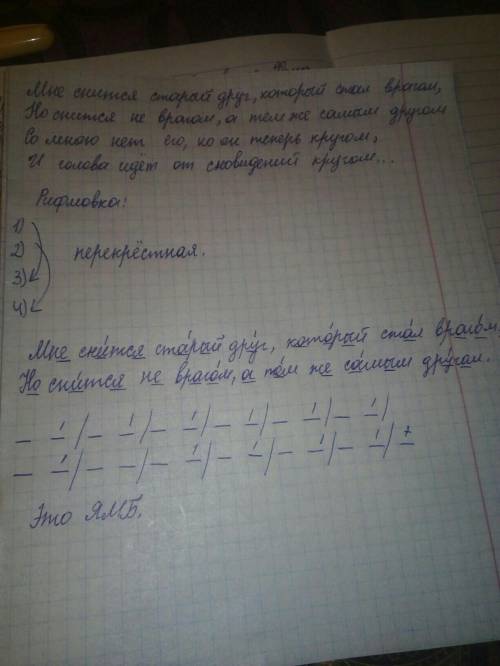 Мне снится старый друг, который стал врагом,
Но снится не врагом, а тем же самым другом
Со мною нет его, но он теперь кругом,
И голова идёт от сновидений кругом...
Рифмовка:
1)
2) перекрёстная.
3)
4)
Мне сни́тся ста́рый дру́г, кото́рый ста́л враго́м.
Но сни́тся не враго́м, а то́м же са́мым дру́гом.
_ _́ / _ _́ / _ _́ / _ _́ / _ _́ / _ _́ /
_ _́ / _ _ / _ _́ / _ _́ / _ _́ / _ _́ / _
Это ЯМБ.